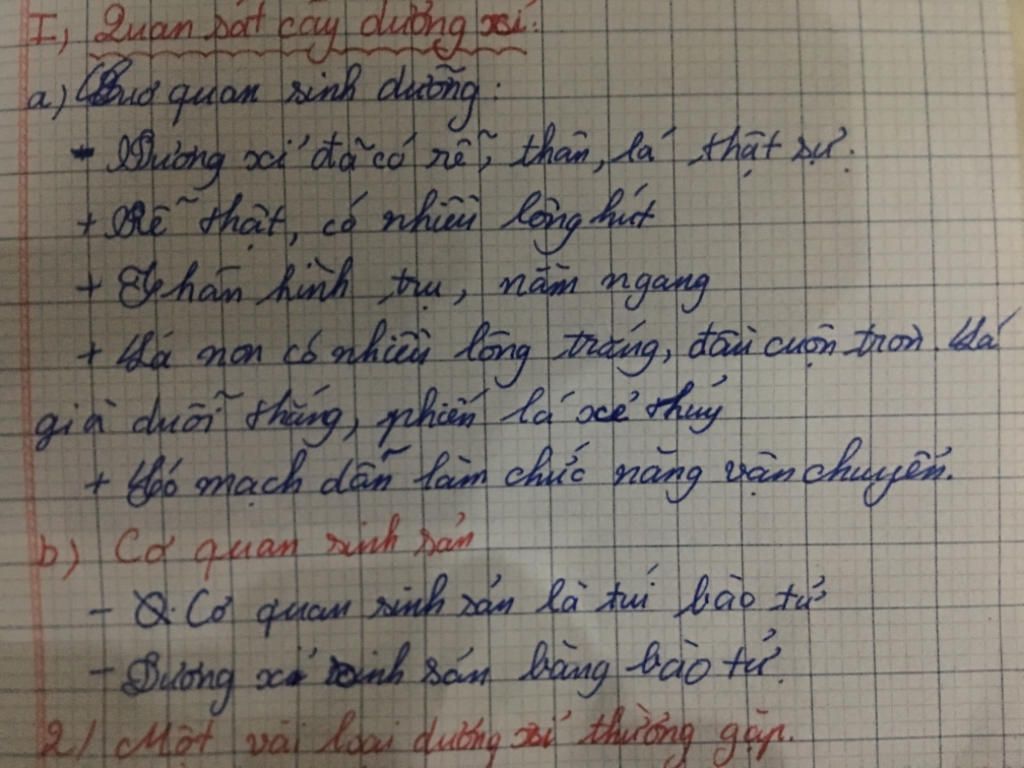 I, Quan sát cây dương xỉ:
a) Cơ quan sinh dưỡng:
- Dương xỉ đã có rễ, thân, lá thật sự.
+ Rễ thật, có nhiều lông hút
+ Thân hình trụ, nằm ngang
+ Lá non có nhiều lông trắng, đầu cuộn tròn. Lá
già duỗi thẳng, phiến lá xẻ thùy
+ Có mạch dẫn làm chức năng vận chuyển.
b) Cơ quan sinh sản
- Cơ quan sinh sản là túi bào tử
- Dương xỉ sinh sản bằng bào tử.
2) Một vài loại dương xỉ thường gặp.